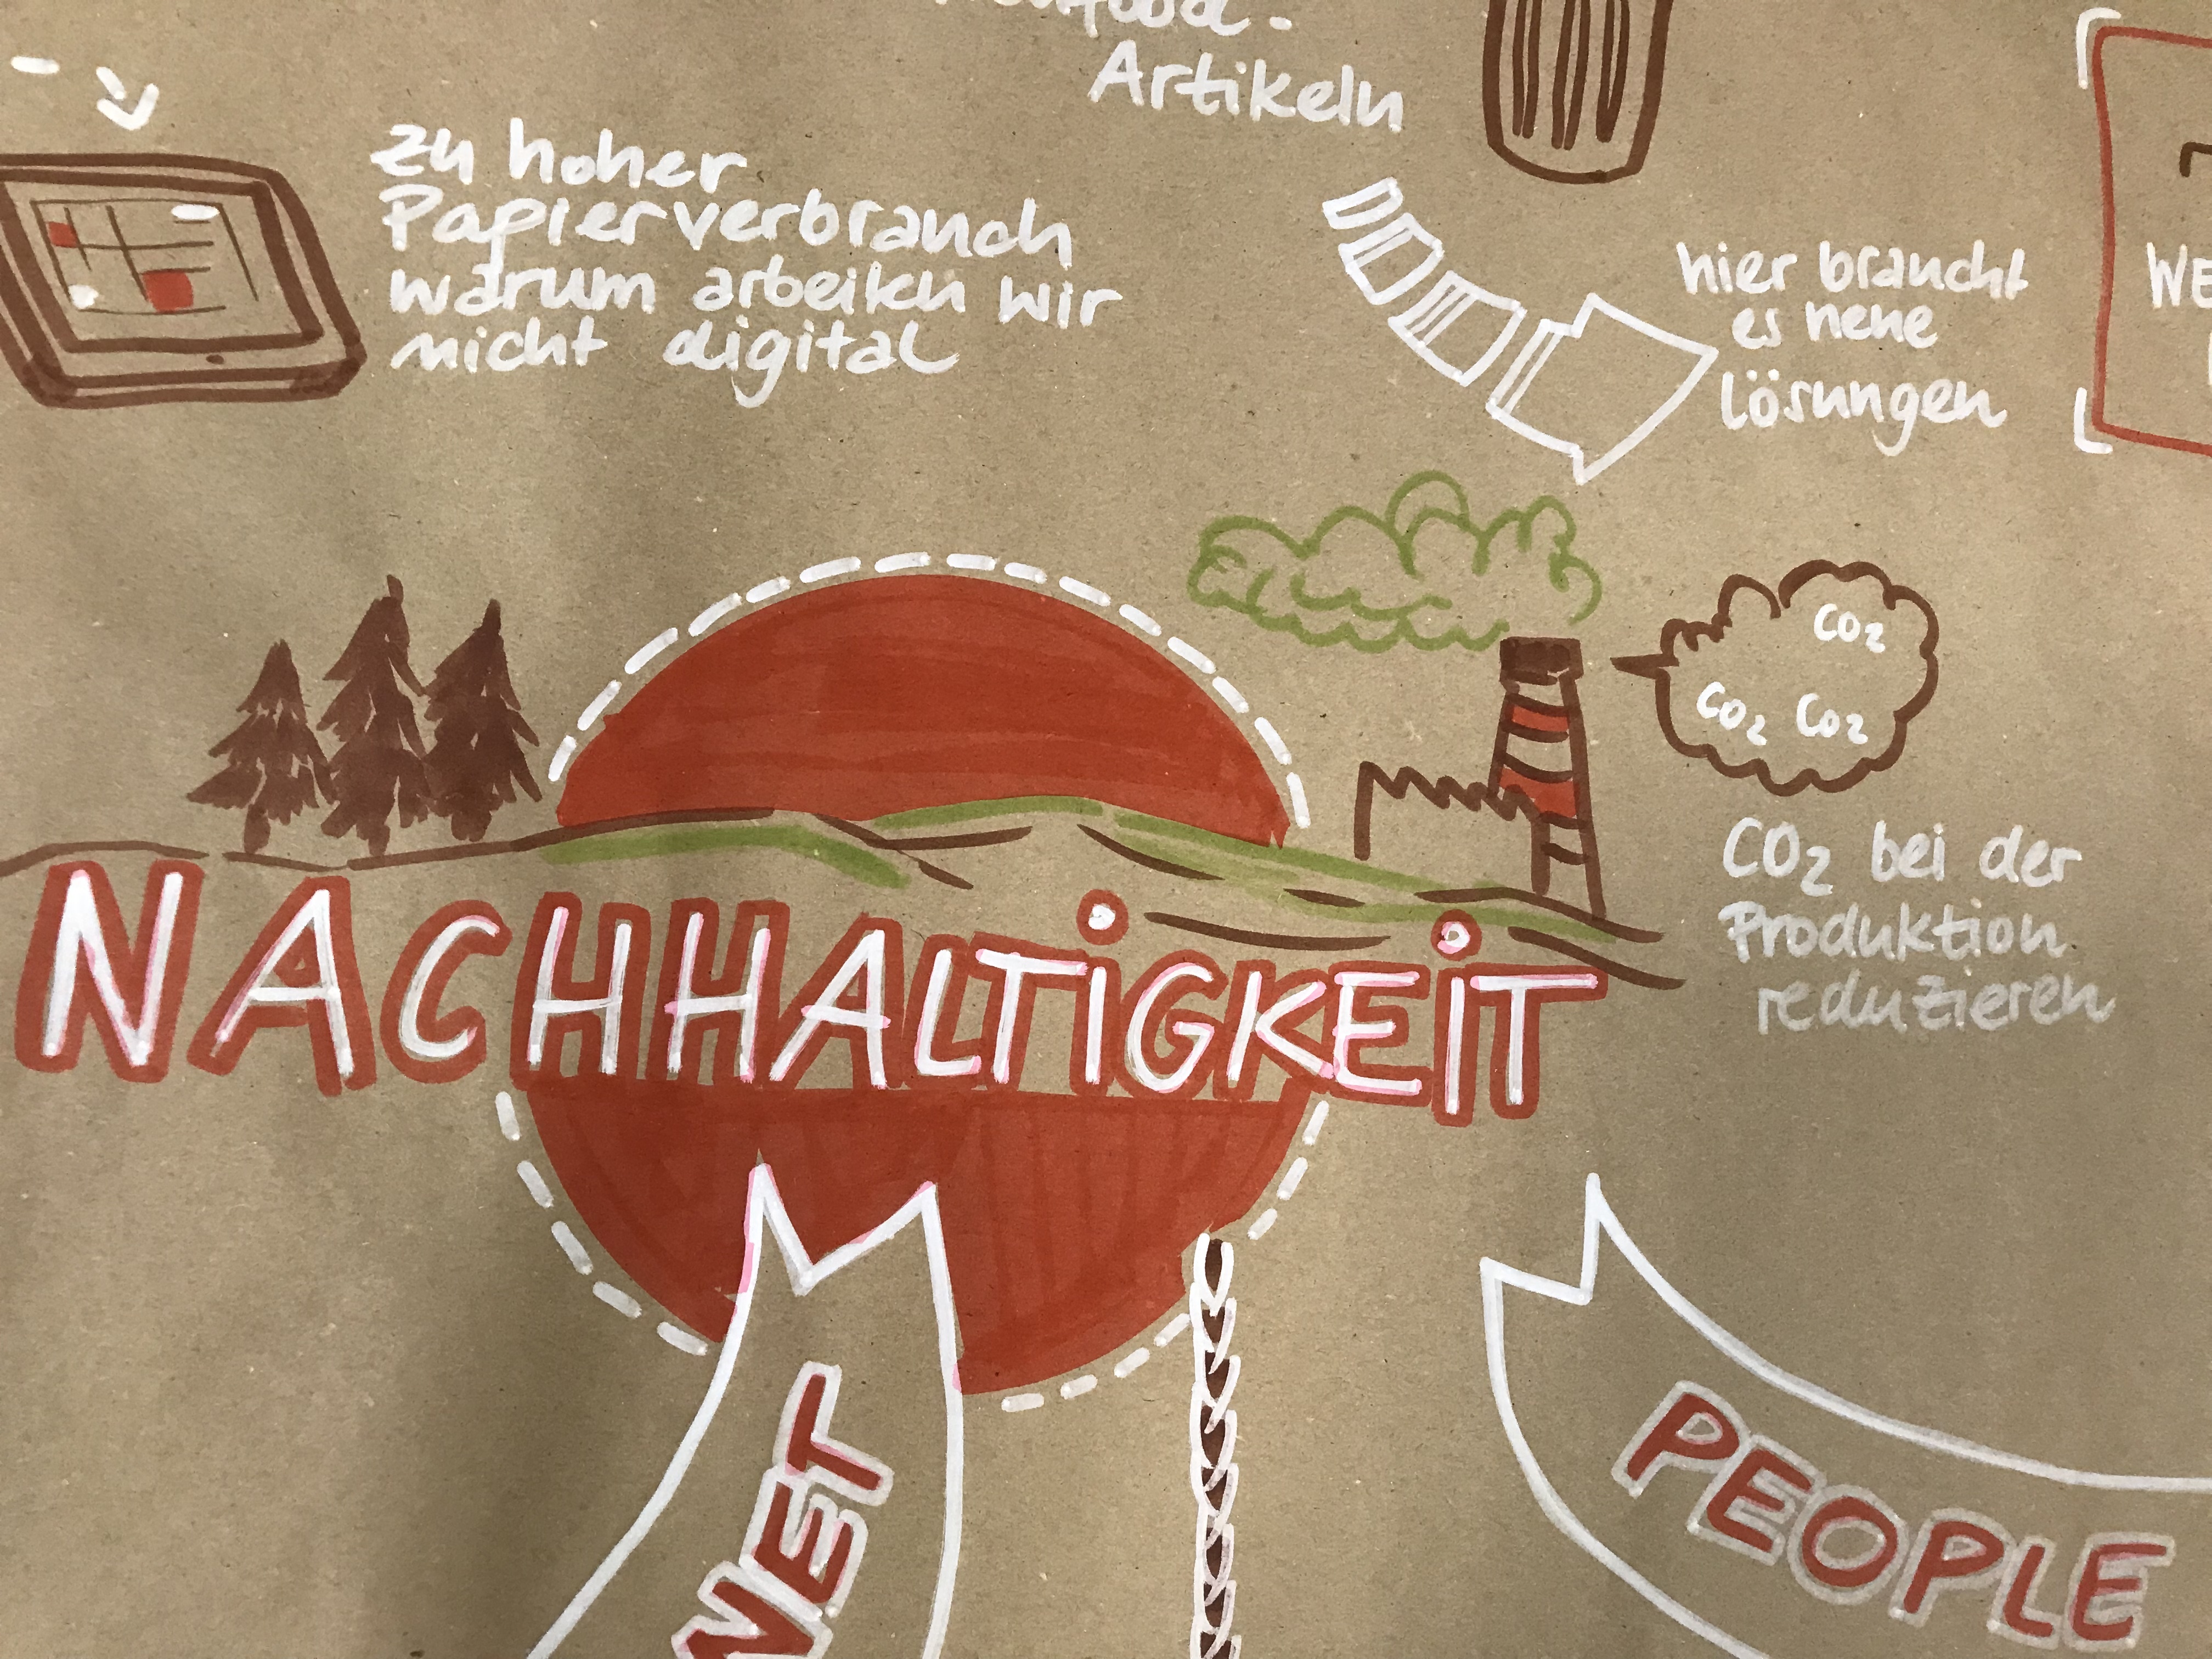 Artikeln
zu hoher
Papierverbrauch
warum arbeiten wir
nicht digital
hier braucht
es neue
lösungen
WE
CO2
CO2 CO2
CO2 bei der
Produktion
reduzieren
NACHHALTiGKEiT
NET
PEOPLE